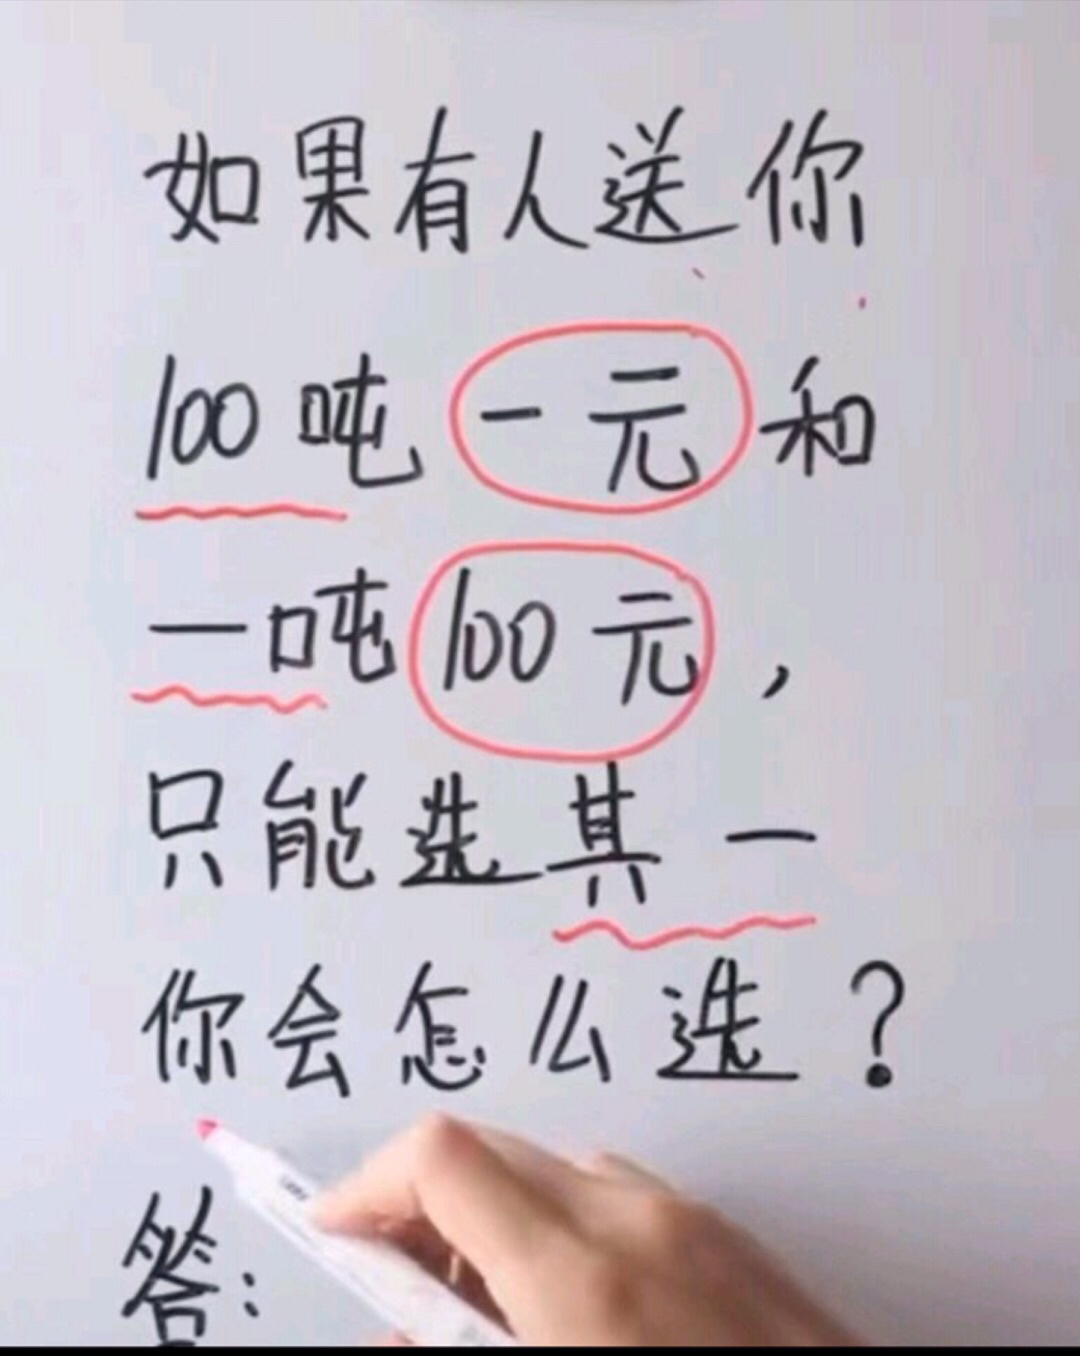 如果有人送你
100吨一元和
一吨100元,
只能选其一
你会怎么选?
答: